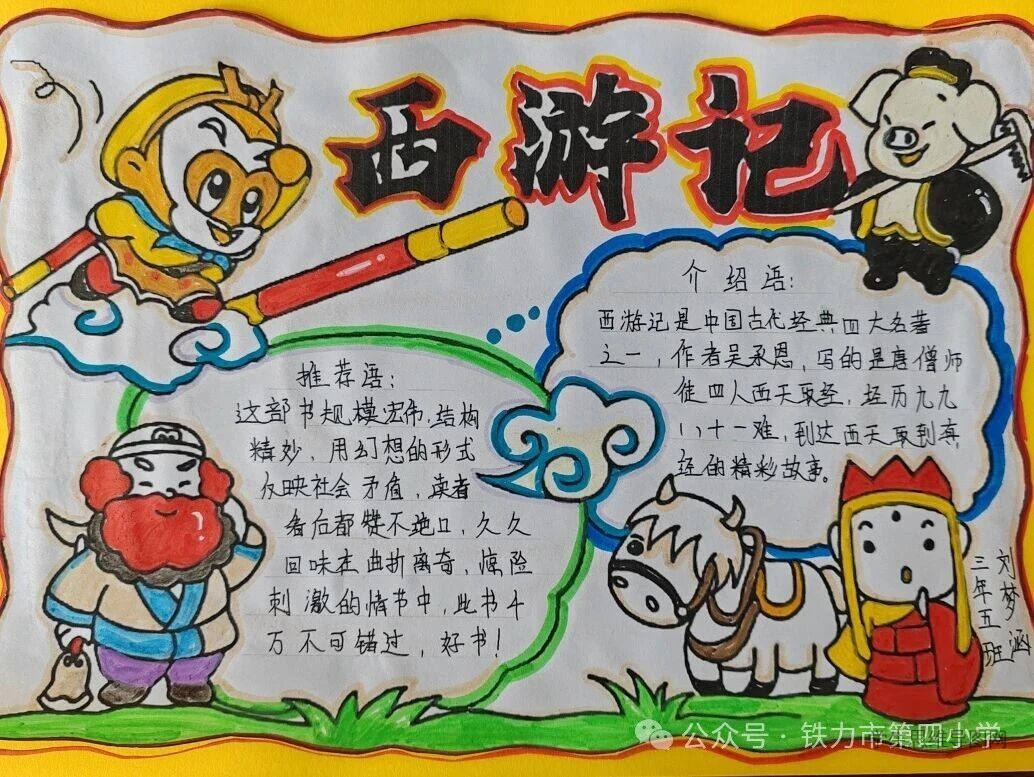 西游记
介绍语:
西游记是中国古代经典四大名著
之一,作者吴承恩,写的是唐僧师
徒四人西天取经,经历九九
八十一难,到达西天取到真
经的精彩故事。
推荐语:
这部书规模宏伟,结构
精妙,用幻想的形式
反映社会矛盾,读者
看后都赞不绝口,久久
回味在曲折离奇,惊险
刺激的情节中,此书千
万不可错过,好书!
三年五班
刘梦涵
公众号·铁力市第四小学